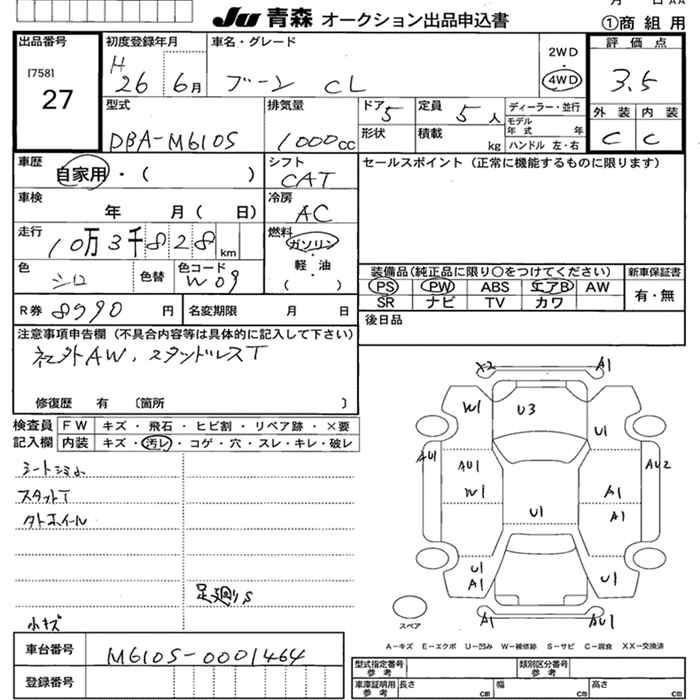 Ju 青森 オークション出品申込書
①商組用
出品番号
[758]
27
初度登録年月
H
26 6月
車名・グレード
ブーン CL
2WD
・
4WD
評価点
3.5
外装 内装
C C
型式
DBA-M610S
排気量
1000cc
ドア 5
形状
定員 5人
積載 kg
ディーラー・並行
モデル
年式 年
ハンドル 左・右
車歴
自家用・( )
シフト
CAT
セールスポイント (正常に機能するものに限ります)
車検
年 月( 日)
冷房
AC
走行
10万3千828 km
燃料
ガソリン
・
軽・油
( )
色
シロ
色替
色コード
W09
装備品(純正品に限り○をつけてください)
新車保証書
PS PW ABS エアB AW
SR ナビ TV カワ
有・無
R券 8990 円
名変期限 月 日
後日品
注意事項申告欄 (不具合内容等は具体的に記入して下さい)
社外AW、スタッドレスT
修復歴 有 〔箇所 〕
検査員
記入欄
FW キズ・飛石・ヒビ割・リペア跡・×要
内装 キズ・汚レ・コゲ・穴・スレ・キレ・破レ
シートシミ小
スタットT
タトホイール
足廻りS
小キズ
X2 A1
W1 U3 U1
AU1 AU1 AU2
W1 A1
U1 A1
U1 U1
A1
A1 AU1
スペア
A-キズ E-エクボ U-凹み W-補修跡 S-サビ C-腐食 XX-交換済
車台番号
M610S-0001464
登録番号
型式指定番号
参考
類別区分番号
参考
車庫証明用
参考
長さ cm 幅 cm 高さ cm